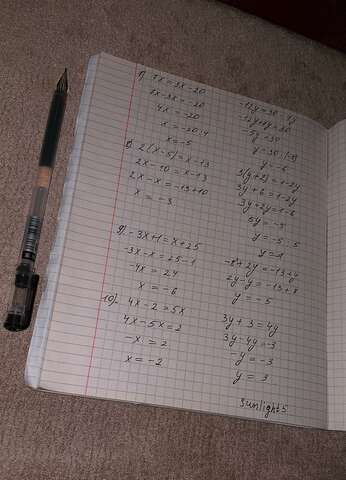 7) 7x=3x-20
7x-3x=-20
4x=-20
x=-20:4
x=-5
8) 2(x-5)=x-13
2x-10=x-13
2x-x=-13+10
x=-3
9) -3x+1=x+25
-3x-x=25-1
-4x=24
x=-6
10) 4x-2=5x
4x-5x=2
-x=2
x=-2
-12y+7y=30
-5y=30
y=-6
3(y+2)=1-2y
3y+6=1-2y
3y+2y=1-6
5y=-5
-8+2y=-13+y
2y-y=-13+8
y=-5
3y+3=4y
3y-4y=-3
-y=-3
y=3
Sunlight5